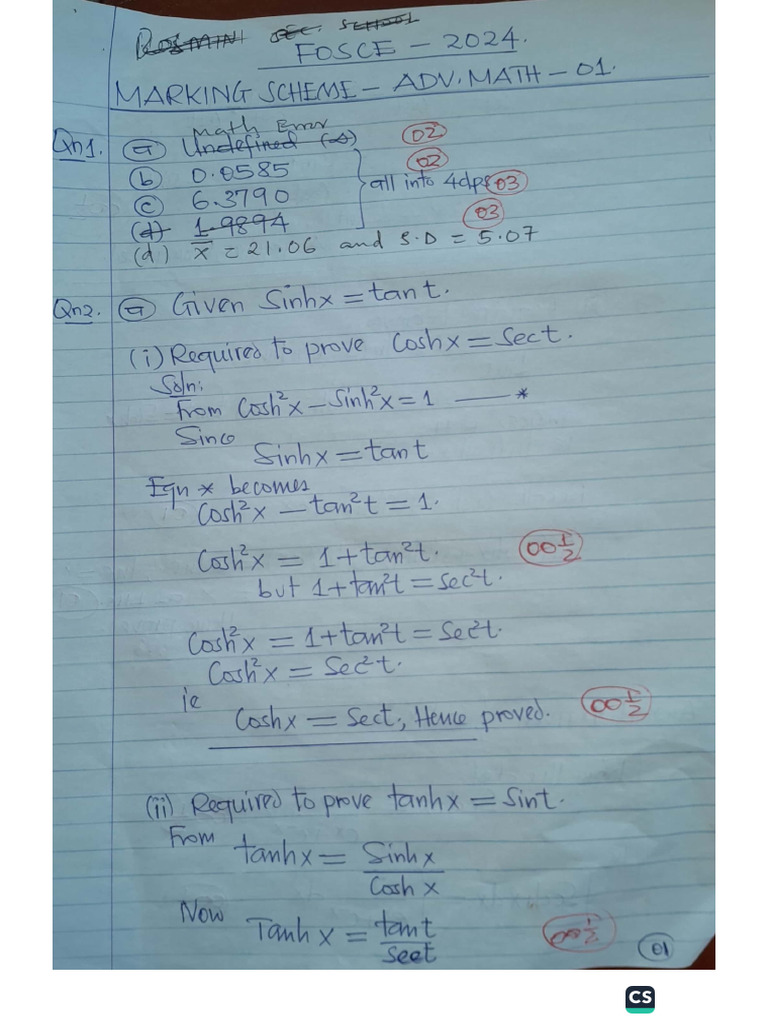 ROSMINI SEC. SCHOOL
FOSCE – 2024.
MARKING SCHEME – ADV. MATH – 01.
Math Error
Qn1. (a) Undefined 02
(b) 0.0585 02
(c) 6.3790 all into 4dps 03
(d) 1.9894 03
(d) x̄ = 21.06 and S.D = 5.07
Qn2. (a) Given Sinhx = tan t.
(i) Required to prove Coshx = Sect.
Soln:
From Cosh²x – Sinh²x = 1 —— *
Since
Sinhx = tan t
Eqn * becomes
Cosh²x – tan²t = 1.
Cosh²x = 1 + tan²t. 00½
but 1 + tan²t = Sec²t.
Cosh²x = 1 + tan²t = Sec²t.
Cosh²x = Sec²t.
ie
Coshx = Sect, Hence proved. 00½
(ii) Required to prove tanhx = Sint.
From tanhx = Sinhx / Coshx
Now Tanhx = tant / sect 00½
01
CS